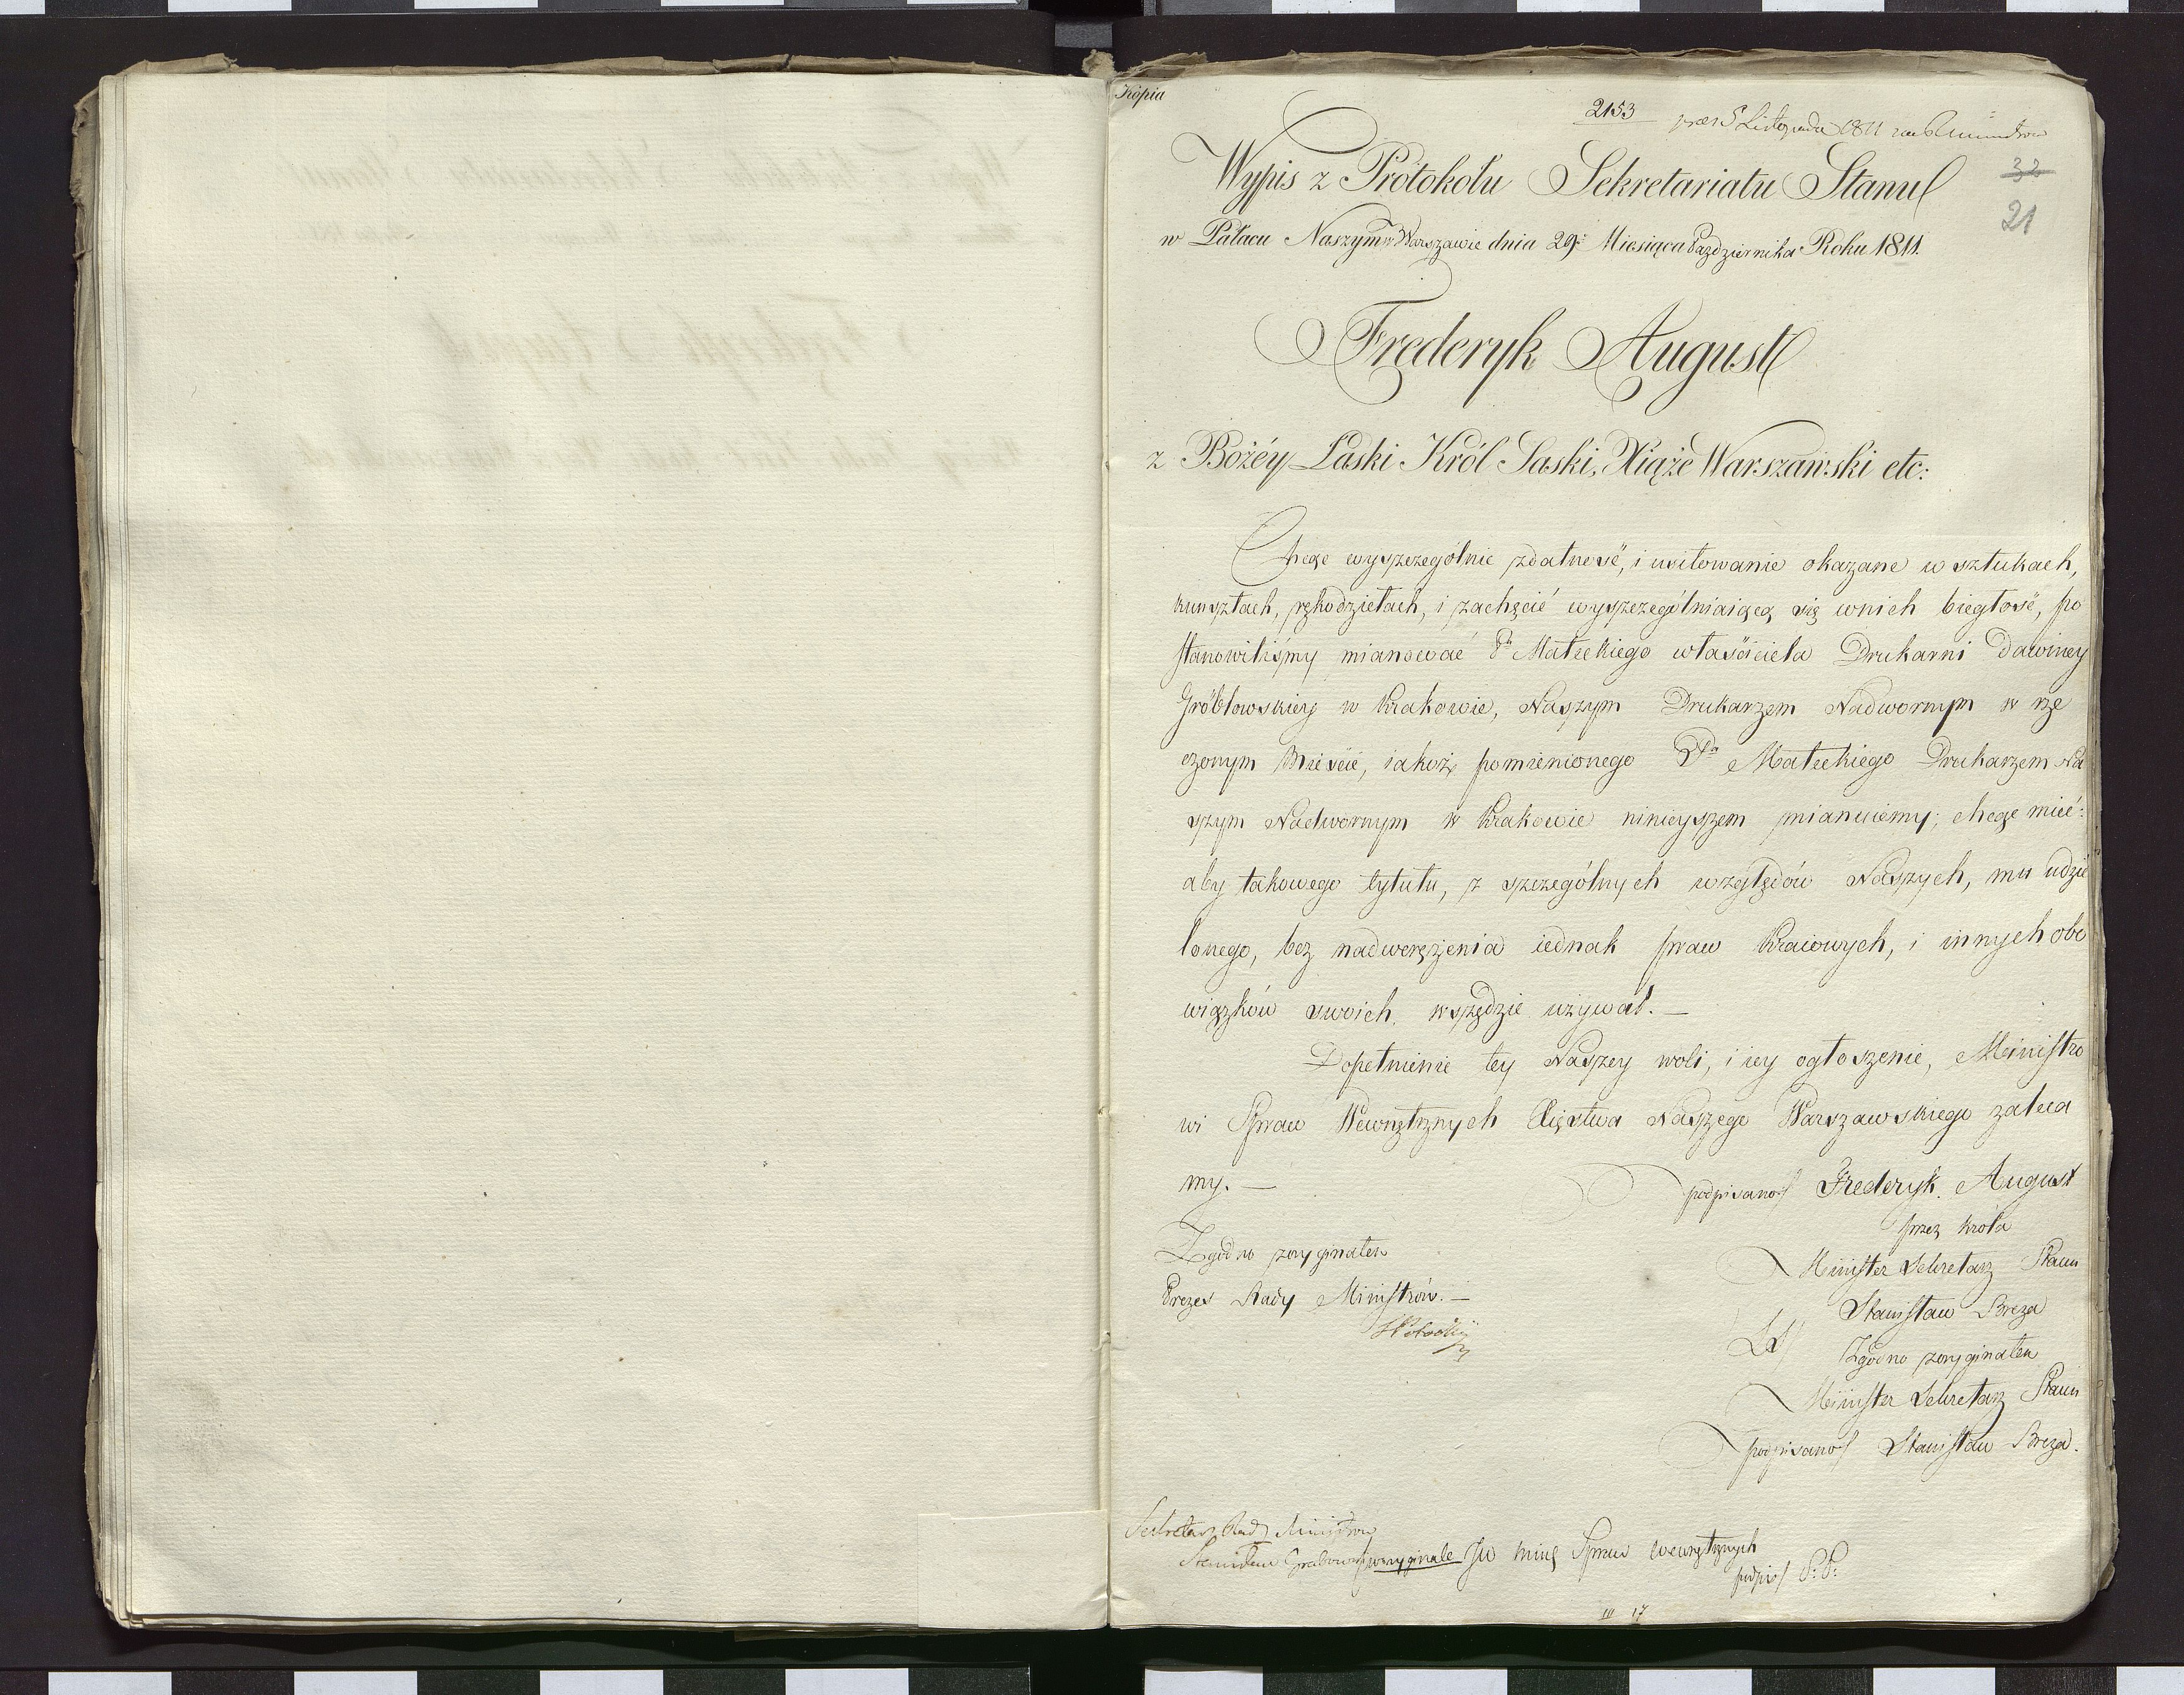 Kopia
2153 prez 5 Listopada 1811 
32
21
Wypis z Protokołu Sekretariatu Stanu
w Pałacu Naszym w Warszawie dnia 29. Miesiąca Października Roku 1811.
Frederyk August
z Bożéy Łaski Król Saski, Xiąże Warszawski etc:
Chcąc wyszczególnić zdatność, i usiłowanie okazane w sztukach,
kunsztach, rękodziełach, i zachęcić wyszczególniaiącą się wnich biegłość, po
stanowiliśmy mianować Pa Małeckiego właściciela Drukarni dawniey
Gröblowskiey w Krakowie, Naszym Drukarzem Nadwornym w rze
czonym Mieście, iakoż pomienionego Pa Małeckiego Drukarzem Na
szym Nadwornym w Krakowie ninieyszem mianuiemy; chcąc mieć:
aby takowego tytułu, z szczególnych względów Naszych, mu udzie
lonego, bez nadwerężenia iednak praw Kraiowych, i innych obo
wiązków swoich wszędzie używał. —
Dopełnienie tey Naszey woli, i iey ogłoszenie, Ministro
wi Spraw Wewnętrznych Xięstwa Naszego Warszawskiego zaleca
my. —
podpisano/ Frederyk August
przez Króla
Minister Sekretarz Stanu
Stanisław Breza
LS/ Zgodno zoryginałem
Minister Sekretarz Stanu
podpisano/ Stanisław Breza.
Zgodno zoryginałem
Prezes Rady Ministrów. —
SPotocki
Sekretarz Rady Ministrów
Stanisław Grabowski woryginale JW Minę Spraw wewnętrznych
podpis/ P: P:
III 17